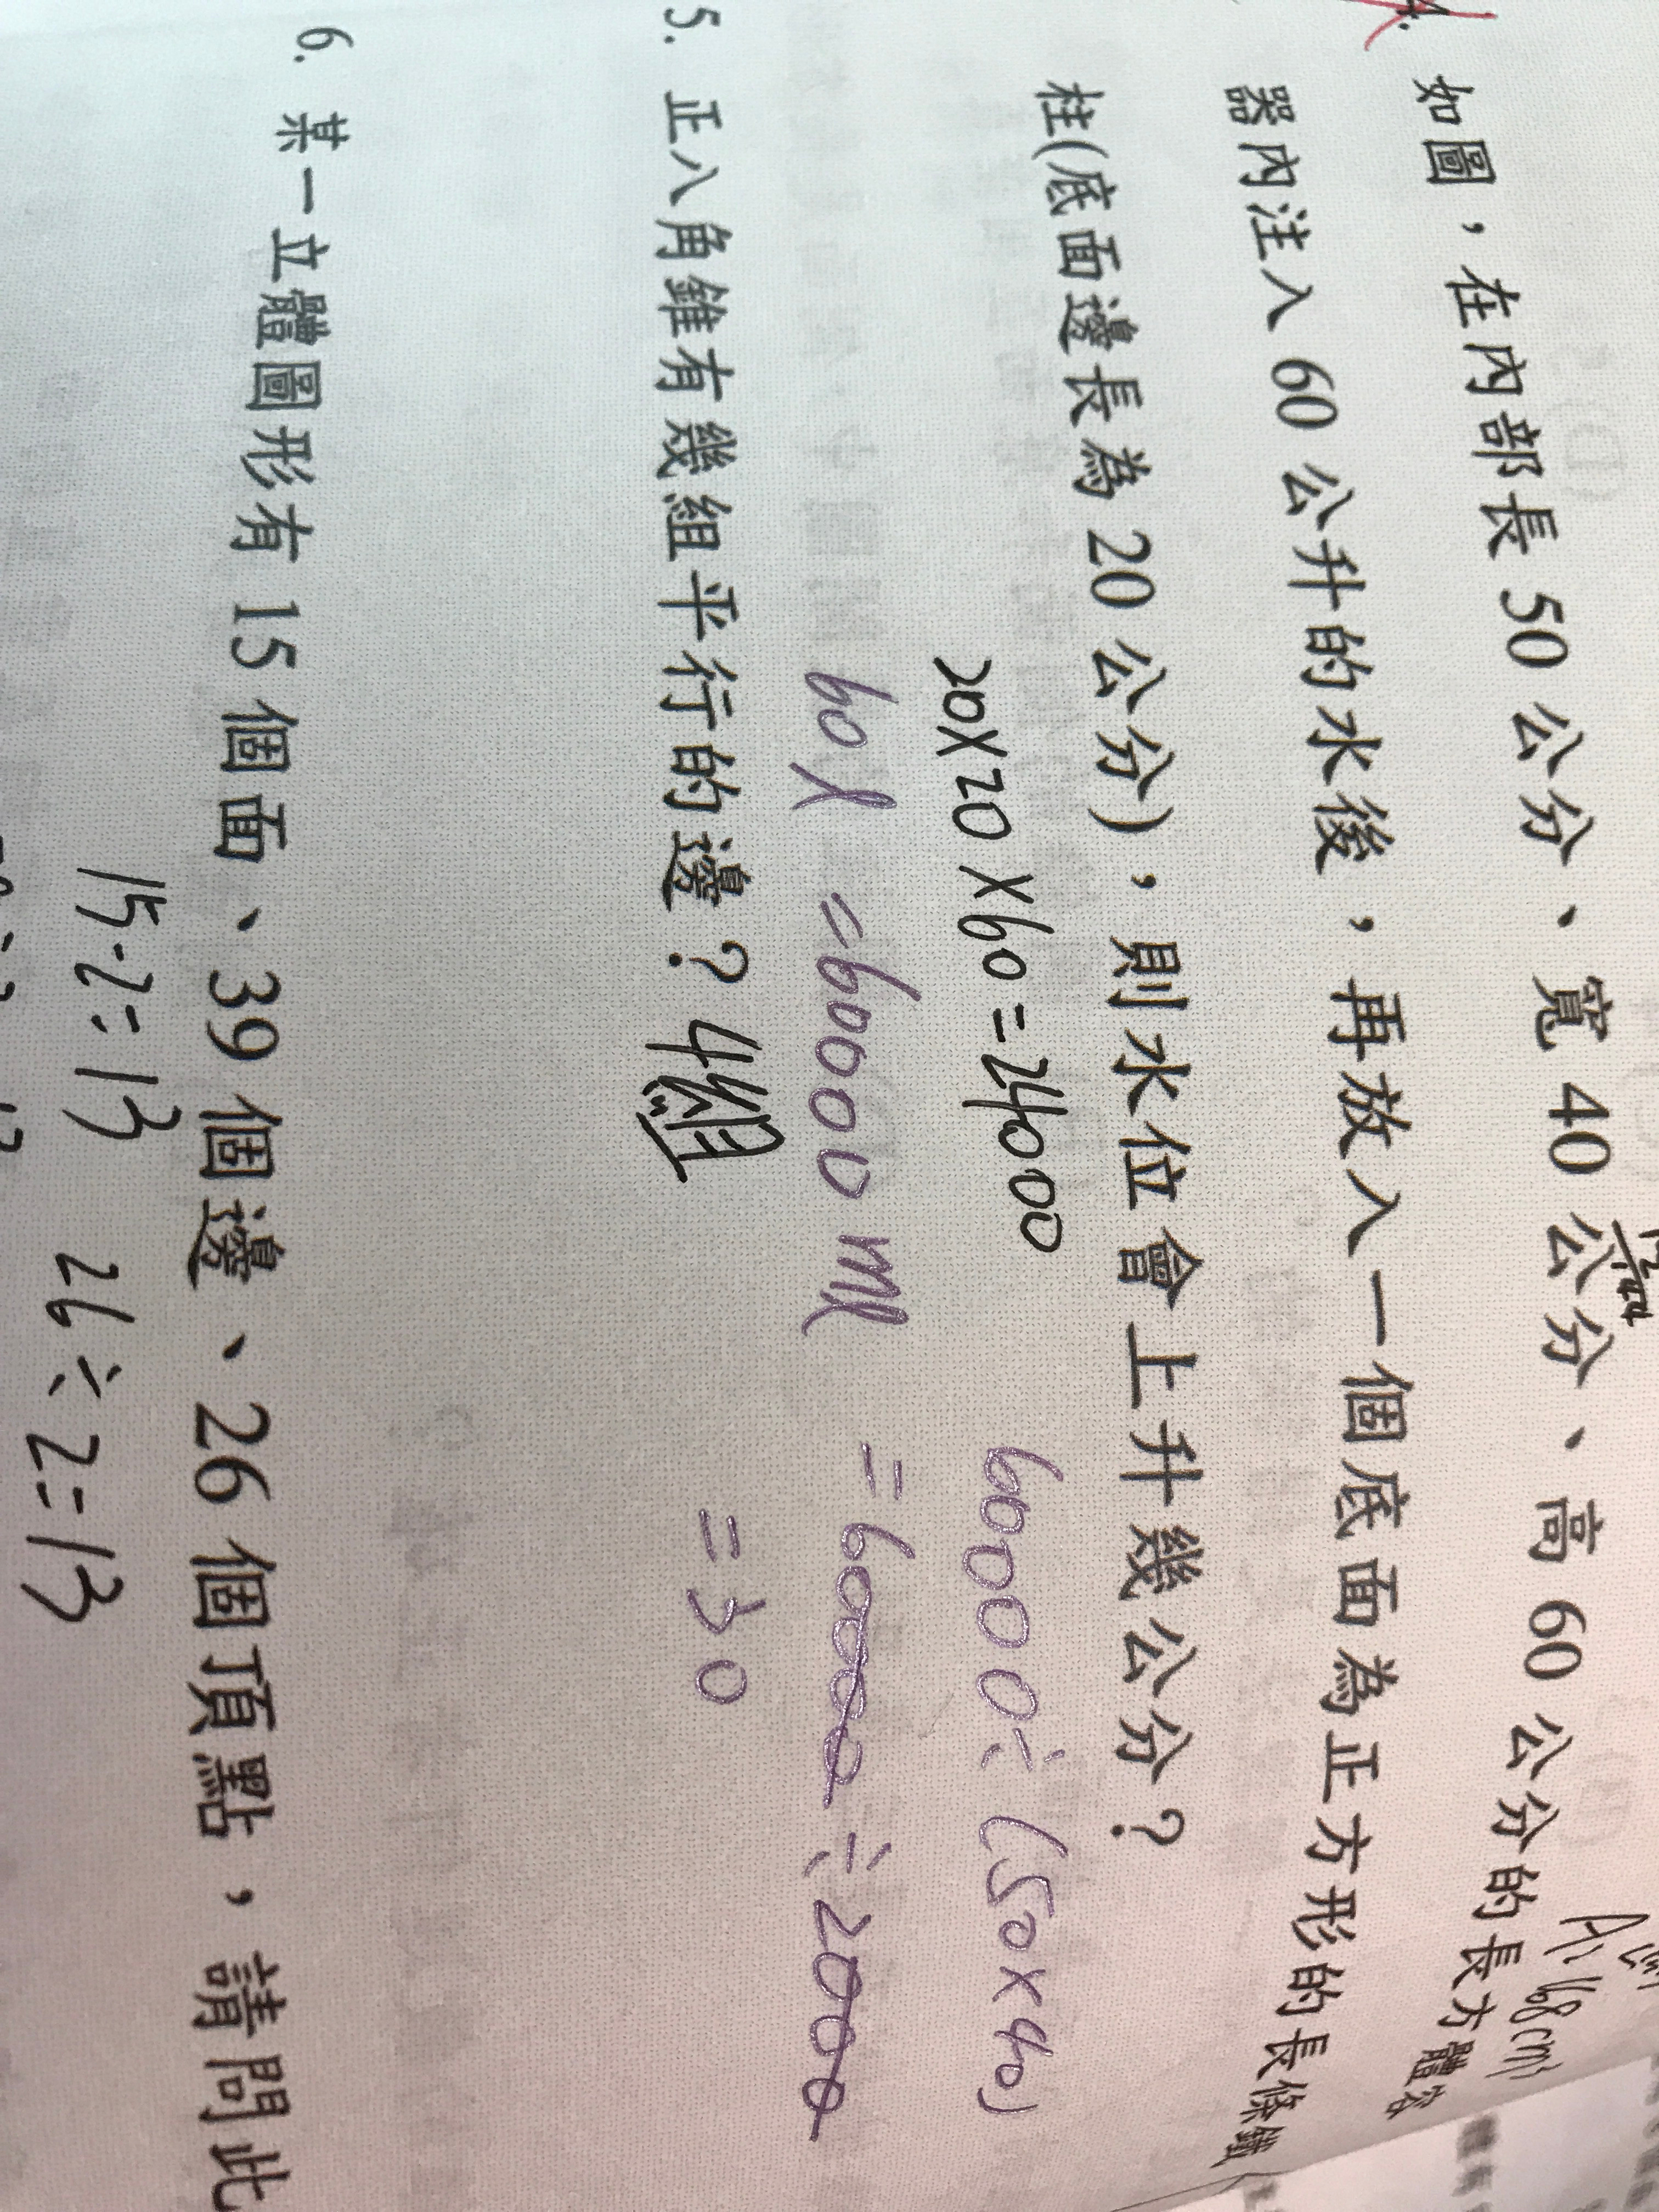 4. 如圖，在內部長 50 公分、寬 40 公分、高 60 公分的長方體容
器內注入 60 公升的水後，再放入一個底面為正方形的長條鐵
柱(底面邊長為 20 公分)，則水位會上升幾公分？
20X20X60=24000
60000÷(50×40)
60l =60000ml
=60000÷2000
=30
5. 正八角錐有幾組平行的邊？4組
6. 某一立體圖形有 15 個面、39 個邊、26 個頂點，請問此
15-2=13
26÷2=13